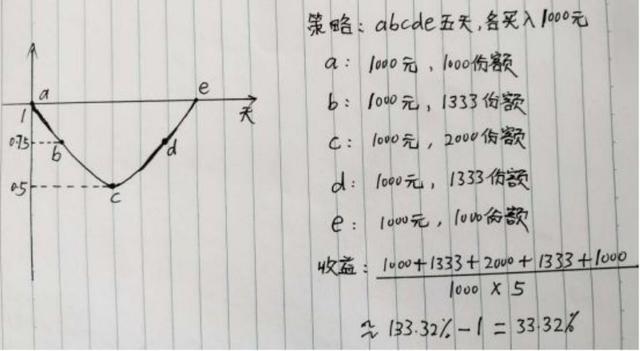 策略：abcde五天，各买入1000元
a：1000元，1000份额
b：1000元，1333份额
c：1000元，2000份额
d：1000元，1333份额
e：1000元，1000份额
收益：1000+1333+2000+1333+1000
1000 × 5
≈ 133.32% - 1 = 33.32%
a
e
1
天
0.75
b
d
0.5
c